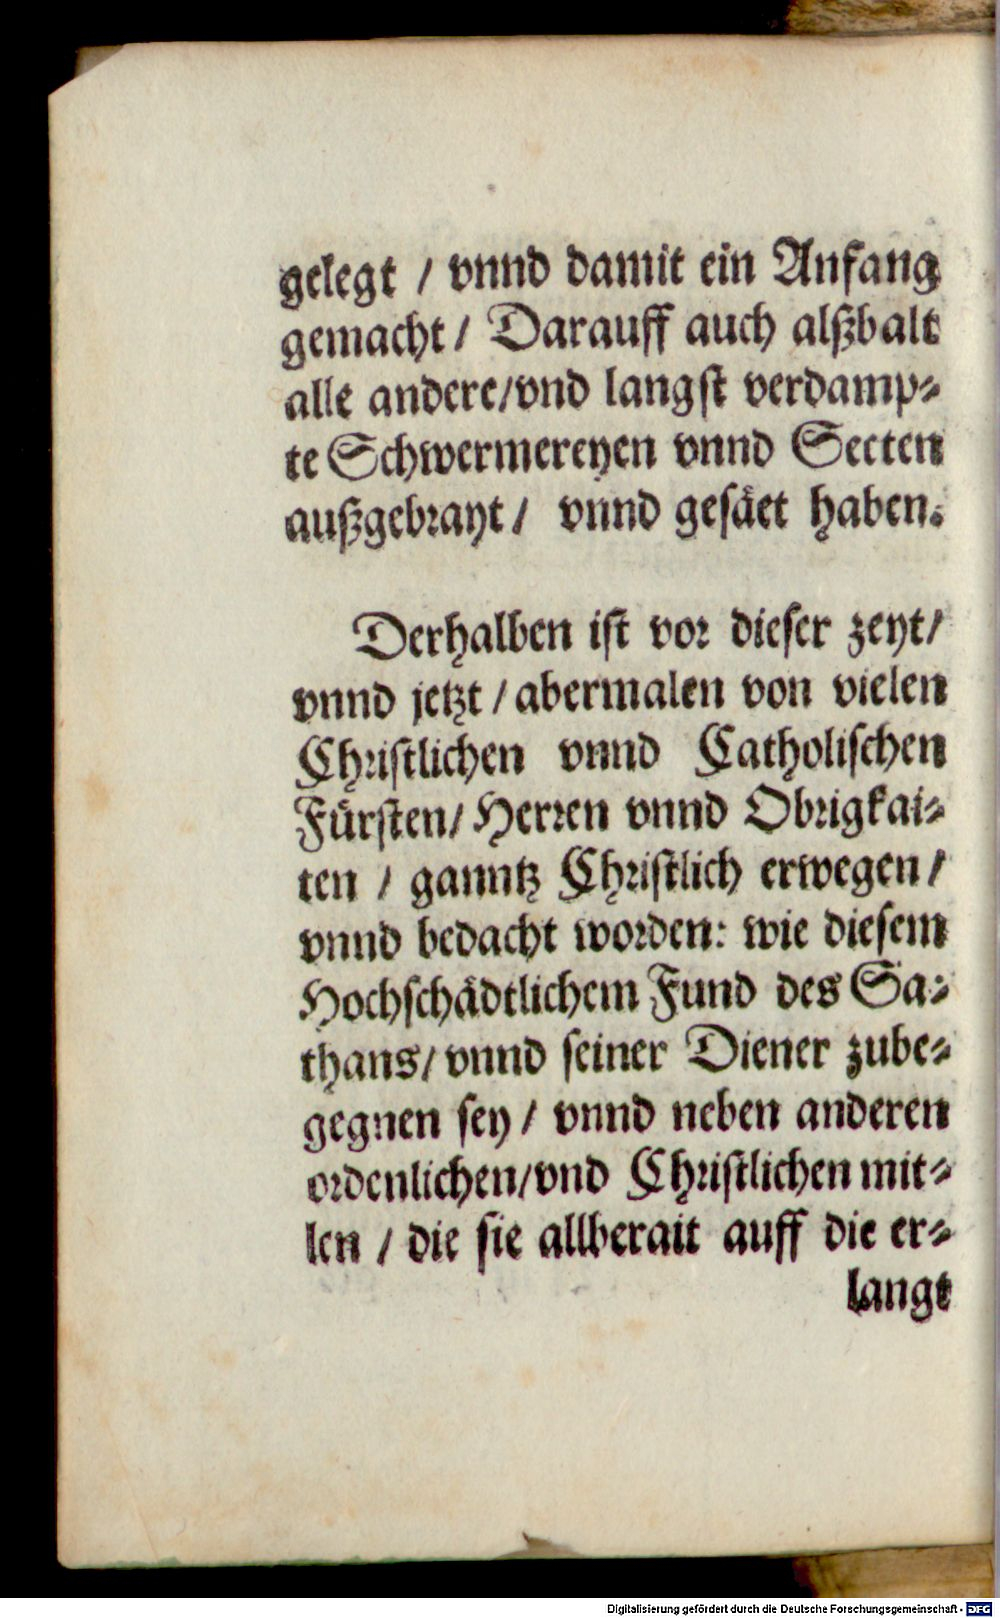 gelegt / vnnd damit ein Anfang
gemacht / Darauff auch alßbalt
alle andere/vnd langst verdamp⸗
te Schwermereyen vnnd Secten
außgebrayt / vnnd gesäet haben.
Derhalben ist vor dieser zeyt/
vnnd jetzt / abermalen von vielen
Christlichen vnnd Catholischen
Fürsten/ Herren vnnd Obrigkai⸗
ten / ganntz Christlich erwegen /
vnnd bedacht worden: wie diesem
Hochschädtlichem Fund des Sa⸗
thans/ vnnd seiner Diener zube⸗
gegnen sey / vnnd neben anderen
ordenlichen/vnd Christlichen mit⸗
len / die sie allberait auff die er⸗
langt
Digitalisierung gefördert durch die Deutsche Forschungsgemeinschaft - DFG